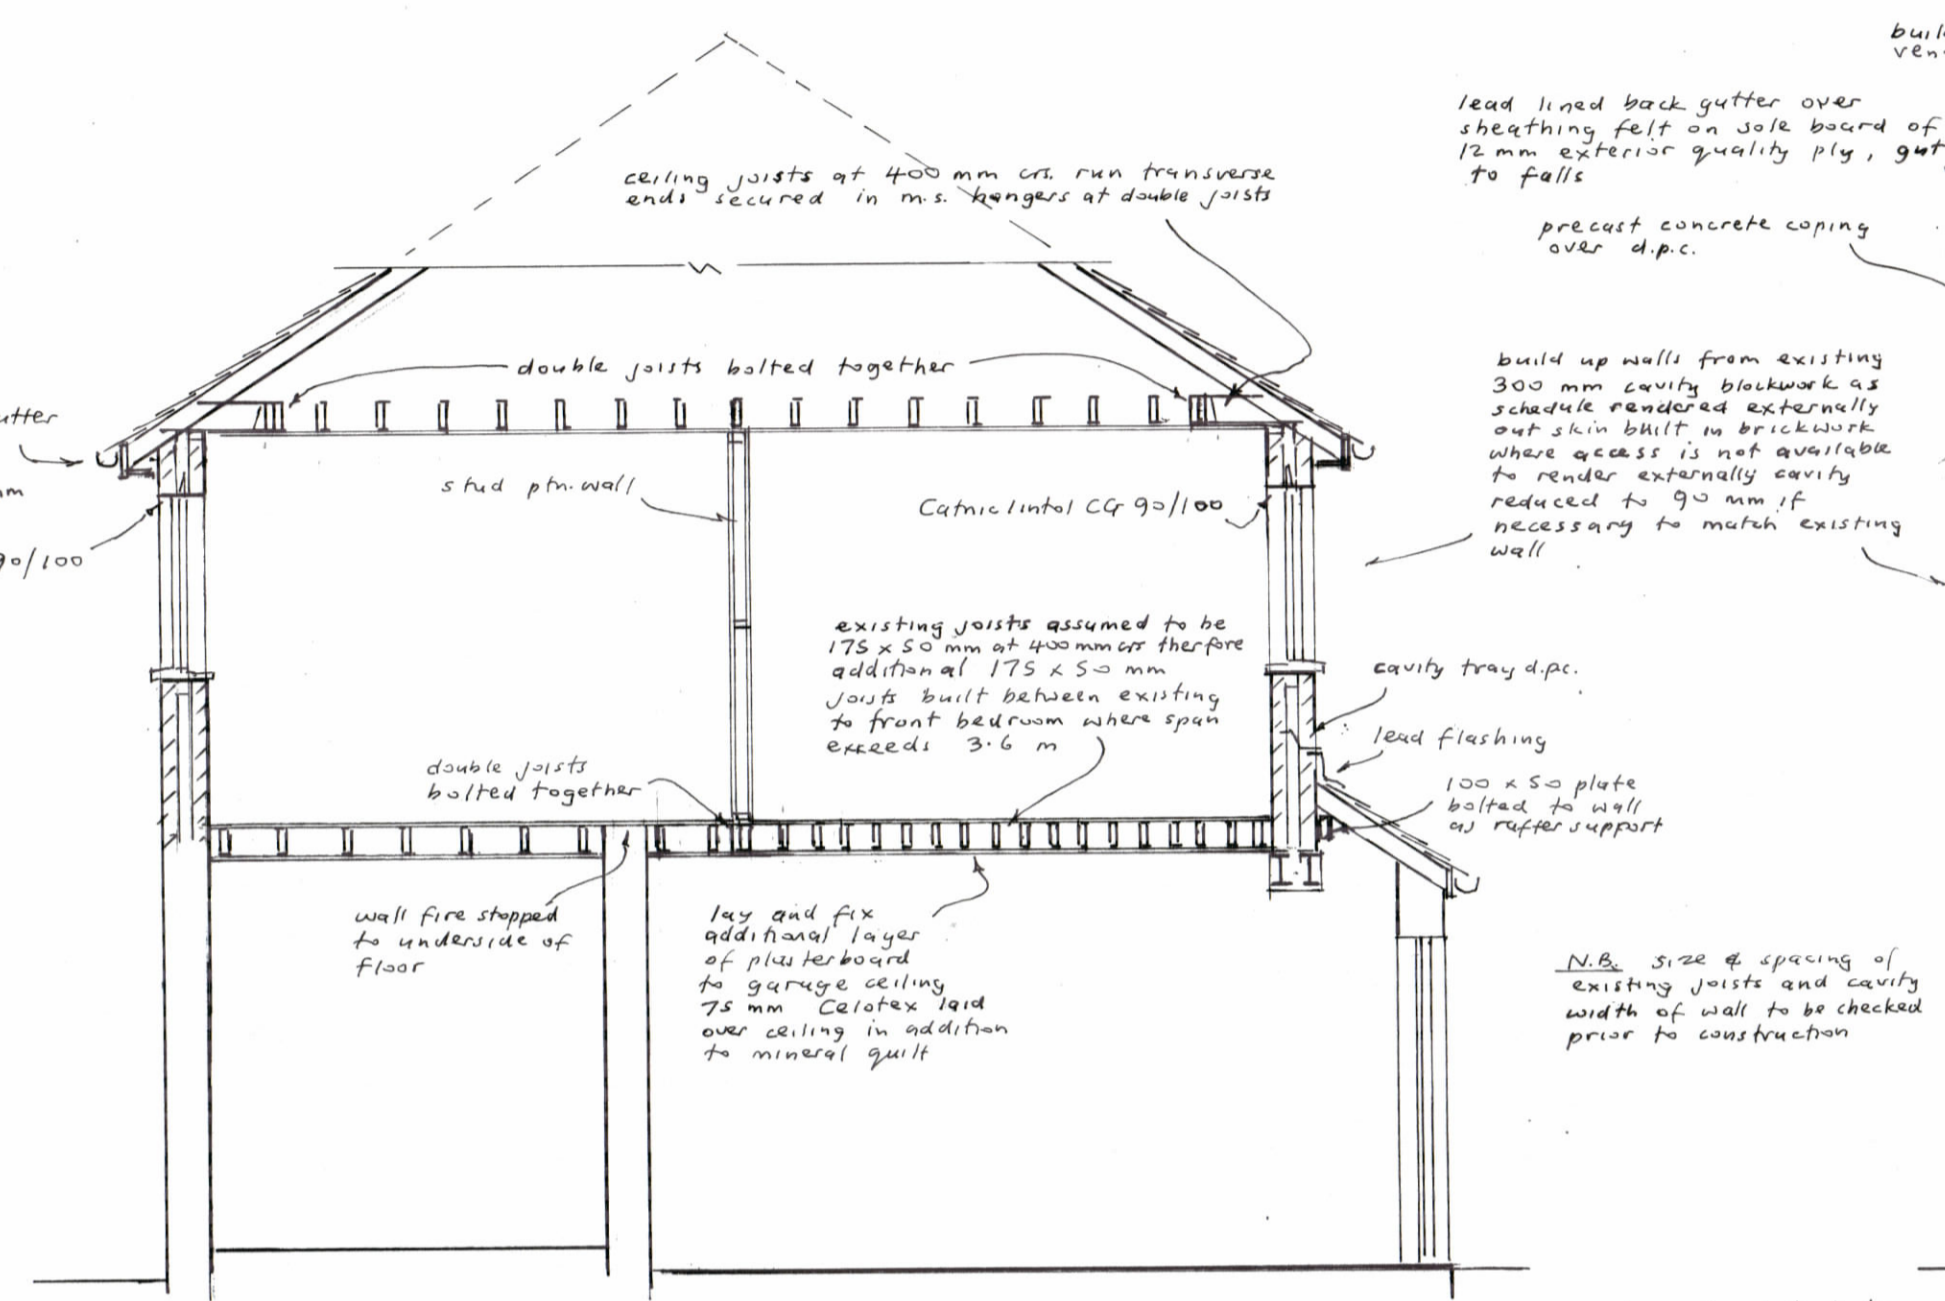 buil
ven
lead lined back gutter over
sheathing felt on sole board of
12 mm exterior quality ply, gut
to falls
ceiling joists at 400 mm crs. run transverse
ends secured in m.s. hangers at double joists
precast concrete coping
over d.p.c.
double joists bolted together
build up walls from existing
300 mm cavity blockwork as
schedule rendered externally
out skin built in brickwork
where access is not available
to render externally cavity
reduced to 90 mm if
necessary to match existing
wall
utter
mm
90/100
stud ptn. wall
Catnic lintol CG 90/100
existing joists assumed to be
175 x 50 mm at 400 mm crs therfore
additional 175 x 50 mm
joists built between existing
to front bedroom where span
exceeds 3.6 m
cavity tray d.p.c.
lead flashing
100 x 50 plate
bolted to wall
as rafter support
double joists
bolted together
wall fire stopped
to underside of
floor
lay and fix
additional layer
of plasterboard
to garage ceiling
75 mm Celotex laid
over ceiling in addition
to mineral quilt
N.B. size & spacing of
existing joists and cavity
width of wall to be checked
prior to construction